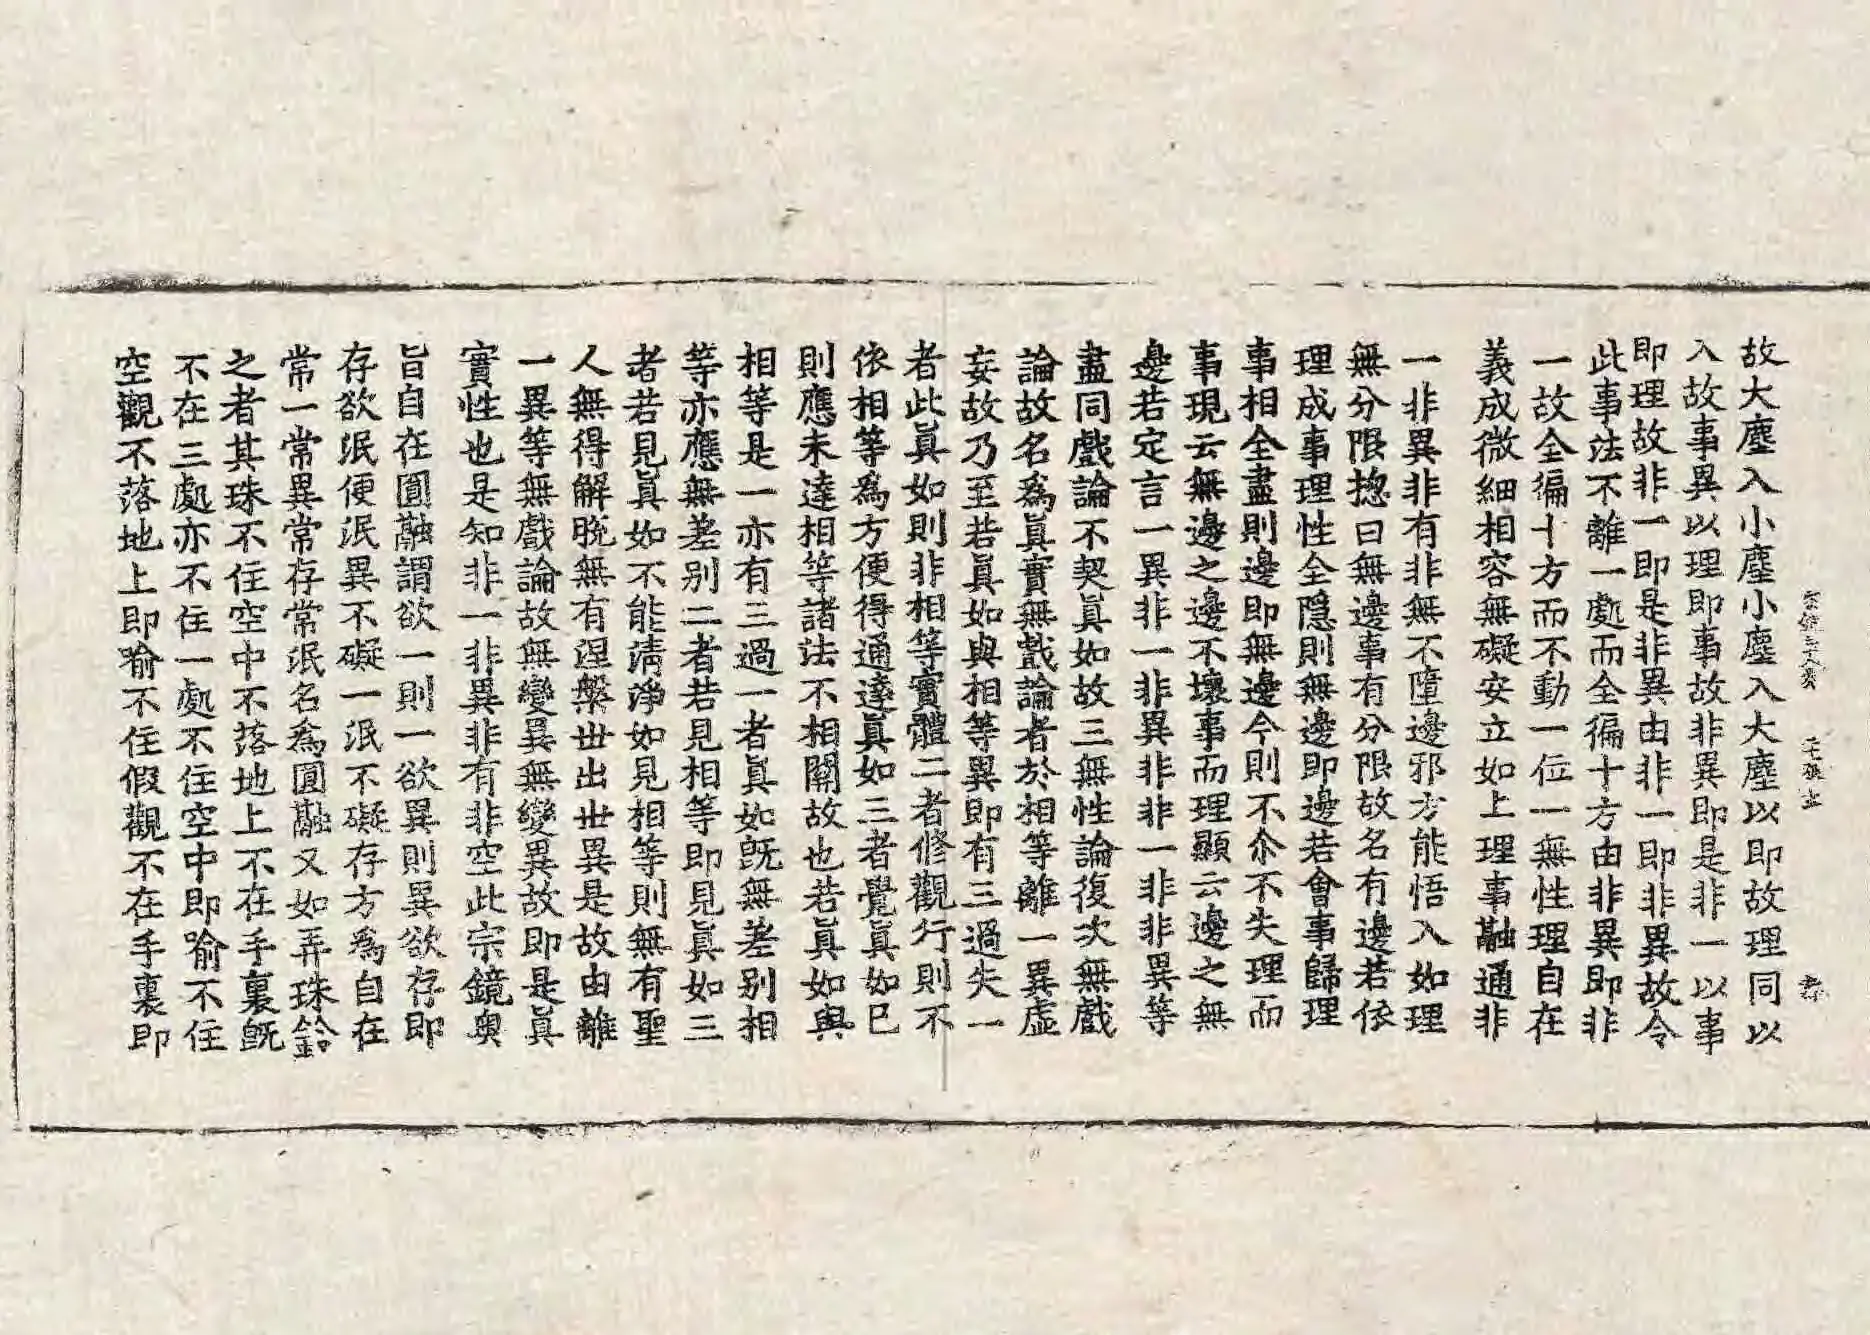 故大塵入小塵小塵入大塵以即故理同以
入故事異以理即事故非異即是非一以事
即理故非一即是非異由非一即非異故令
此事法不離一處而全徧十方由非異即非
一故全徧十方而不動一位一無性理自在
義成微細相容無礙安立如上理事融通非
一非異非有非無不墮邊邪方能悟入如理
無分限揔曰無邊事有分限故名有邊若依
理成事理性全隱則無邊即邊若會事歸理
事相全盡則邊即無邊今則不尒不失理而
事現云無邊之邊不壞事而理顯云邊之無
邊若定言一異非一非異非非一非非異等
盡同戲論不契眞如故三無性論復次無戲
論故名爲眞實無戲論者於相等離一異虛
妄故乃至若眞如與相等異即有三過失一
者此眞如則非相等實體二者修觀行則不
依相等爲方便得通達眞如三者覺眞如已
則應未達相等諸法不相關故也若眞如與
相等是一亦有三過一者眞如旣無差別相
等亦應無差別二者若見相等即見眞如三
者若見眞如不能清淨如見相等則無有聖
人無得解脫無有涅槃世出世異是故由離
一異等無戲論故無變異無變異故即是眞
實性也是知非一非異非有非空此宗鏡奧
旨自在圓融謂欲一則一欲異則異欲存即
存欲泯便泯異不礙一泯不礙存方爲自在
常一常異常存常泯名爲圓融又如弄珠鈴
之者其珠不住空中不落地上不在手裏旣
不在三處亦不住一處不住空中即喻不住
空觀不落地上即喻不住假觀不在手裏即